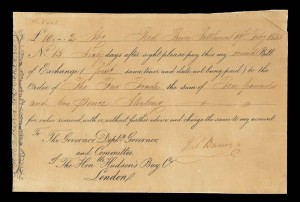 £10..-..2 Stg Red River Settlement
No. 13 Sixty days after sight please pay this my second Bill
of Exchange (first same tenor and date not being paid) to the
Order of the the sum of Ten pounds
and two pence Sterling
for value received, with or without further advice and charge the same to my account
To
The Governor Depty. Governor
and Committee
of The Honble. Hudson's Bay Co.
London